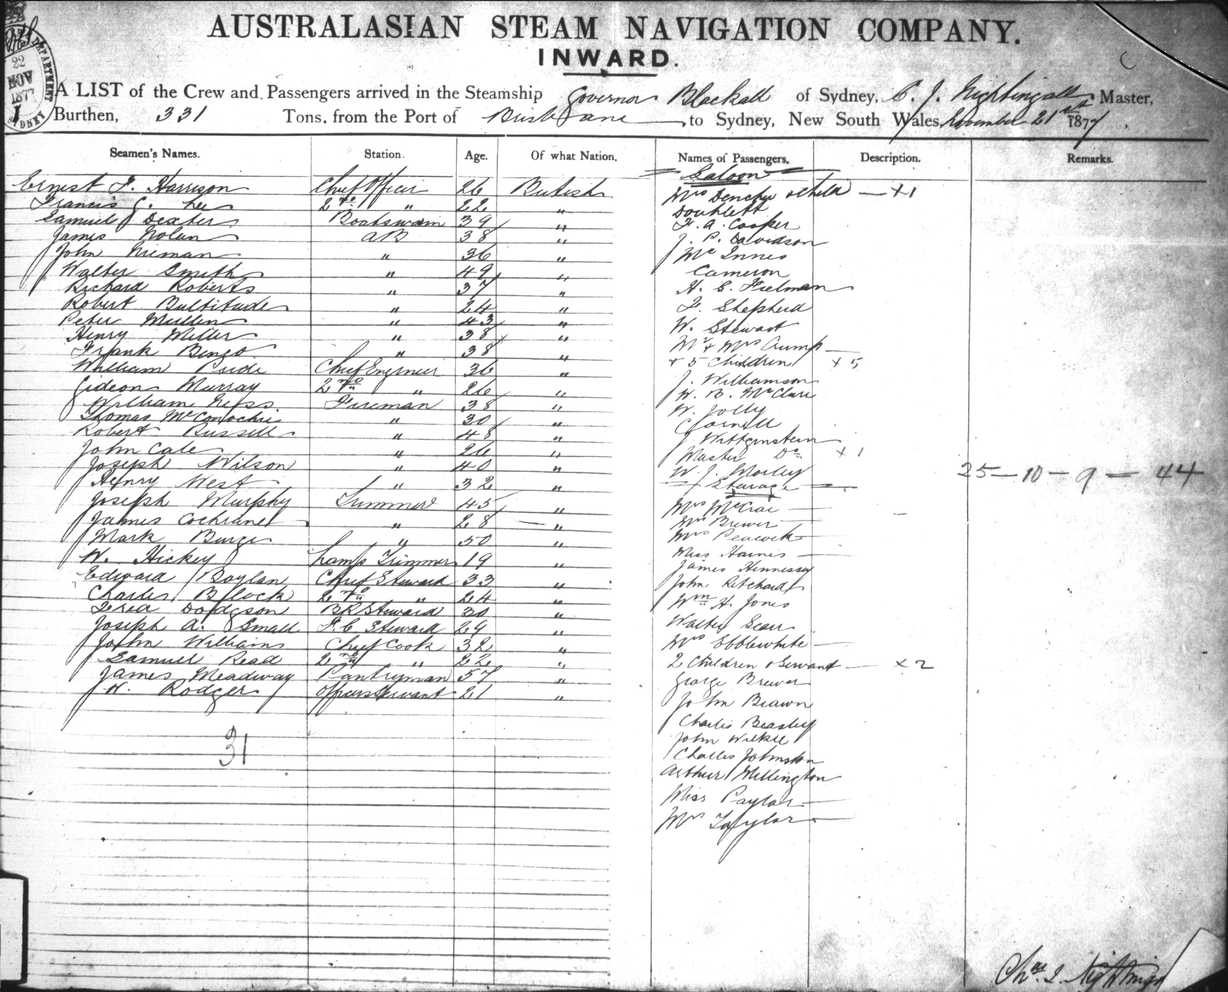 AUSTRALASIAN STEAM NAVIGATION COMPANY.
INWARD.
22
NOV
187
SYDNEY
A LIST of the Crew and Passengers arrived in the Steamship Governor Blackall of Sydney, C. J. Nightingall Master,
Burthen, 331 Tons, from the Port of Brisbane to Sydney, New South Wales, November 21st 1877.
Seamen's Names. Station. Age. Of what Nation. Names of Passengers. Description. Remarks.
Saloon
Ernest F. Harrison Chief Officer 26 British
Francis C. Lee 2nd " 22 "
Samuel Dexter Boatswain 39 "
James Nolan AB 38 "
John Nieman " 36 "
Walter Smith " 49 "
Richard Roberts " 37 "
Robert Bultitude " 24 "
Peter Mullen " 43 "
Henry Miller " 38 "
Frank Bingo " 38 "
William Pride Chief Engineer 36 "
Gideon Murray 2nd " 26 "
William Hess Fireman 38 "
Thomas McConochie " 30 "
Robert Russell " 48 "
John Cale " 26 "
Joseph Wilson " 40 "
Henry West " 32 "
Joseph Murphy Trimmer 45 "
James Cochrane " 28 "
Mark Burge " 50 "
W. Hickey Lamp Trimmer 19 "
Edward Boylan Chief Steward 33 "
Charles Block 2nd " 24 "
Fred Dodgson Bk Steward 30 "
Joseph A. Small F. C. Steward 29 "
John Williams Chief Cook 32 "
Samuel Read 2nd " 22 "
James Meadway Pantryman 57 "
W. Rodger Officers Servant 21 "
31
Mrs & child — +1
Doublett
F. A. Cooper
J. P. Davidson
McInnes
Cameron
H. C.
F. Shepherd
W. Stewart
Mr & Mrs Crump
+ 5 Children +5
J. Williamson
H. B. McClure
W. Jolly
Cornell
J Wittgenstein
Master Do +1
W. J. Morley
Steerage
25 — 10 — 9 — 44
Mrs McCrae
Mrs Brewer
Mrs Peacock
Miss Haines
James Hennessy
John Ritchard
Wm H. Jones
Walter Scarr
Mrs Ebblewhite
2 Children & Servant — +2
George Brewer
John Brawn
Charles Beasley
John Wilkie
Charles Johnston
Arthur Millington
Miss Paylor
Mrs Taylor